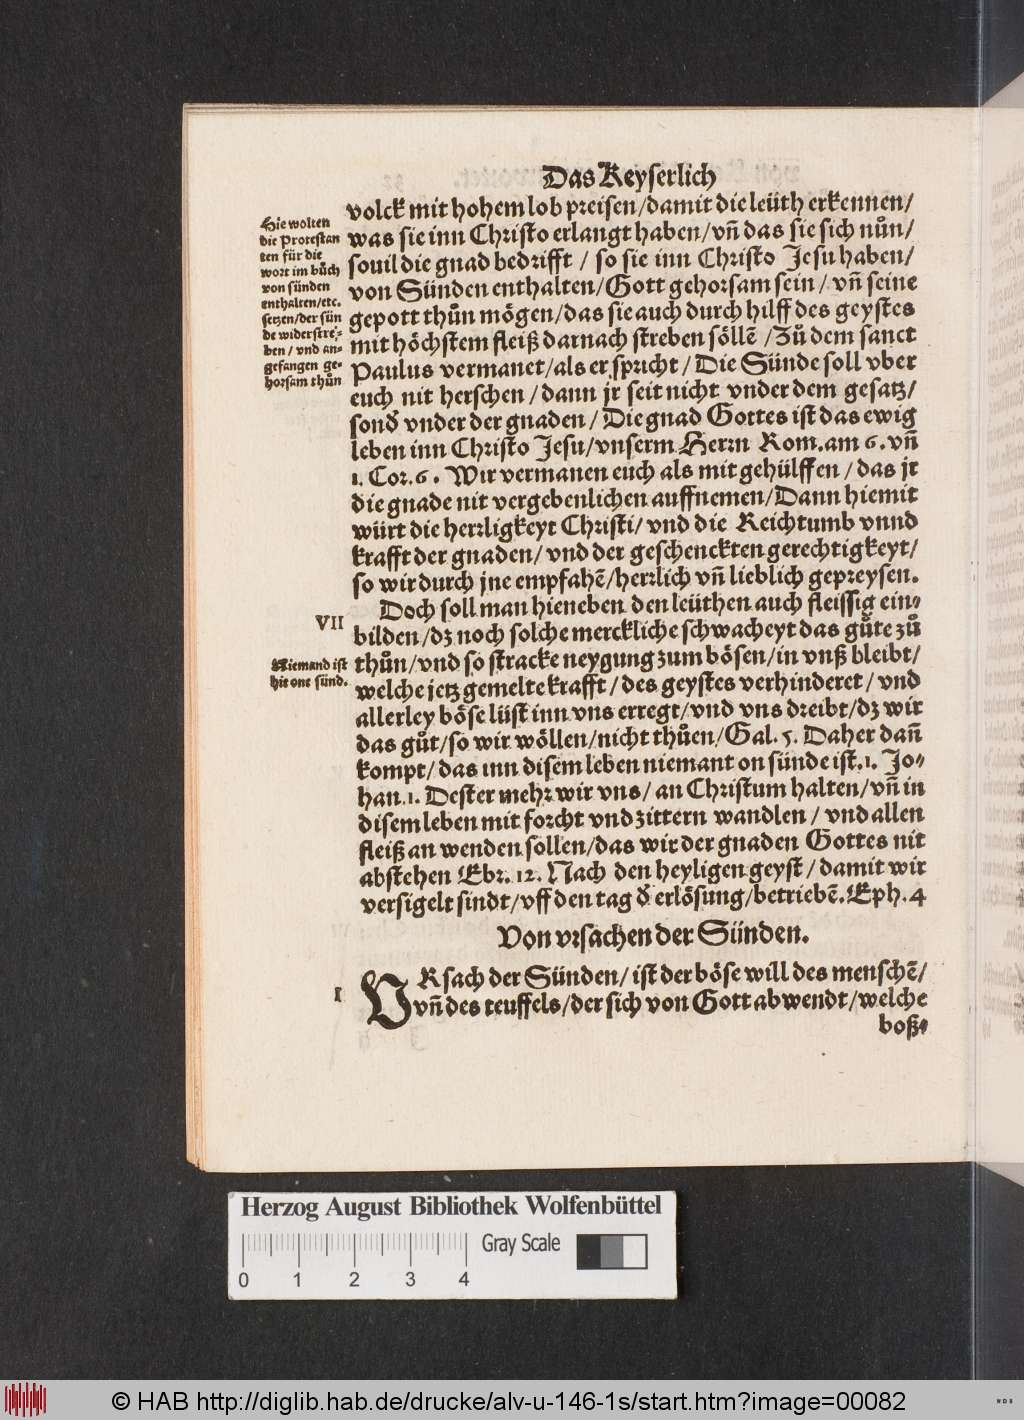 Das Keyserlich
volck mit hohem lob preisen/damit die leüth erkennen/
was sie inn Christo erlangt haben/vn̄ das sie sich nůn/
souil die gnad bedrifft / so sie inn Christo Jesu haben/
von Sünden enthalten/Gott gehorsam sein/ vn̄ seine
gepott thůn mögen/das sie auch durch hilff des geystes
mit höchstem fleiß darnach streben söllē /Zů dem sanct
Paulus vermanet/als er spricht/ Die Sünde soll vber
euch nit herschen / dann jr seit nicht vnder dem gesatz/
sonđ vnder der gnaden/ Die gnad Gottes ist das ewig
leben inn Christo Jesu/vnserm Herrn Rom. am 6. vn̄
1. Cor. 6. Wir vermanen euch als mit gehülffen / das jr
die gnade nit vergebenlichen auffnemen/Dann hiemit
würt die herrligkeyt Christi/ vnd die Reichtumb vnnd
krafft der gnaden/ vnd der geschenckten gerechtigkeyt/
so wir durch jne empfahē/herrlich vn̄ lieblich gepreysen.
Hie wolten
die Protestan
ten für die
wort im bůch
von sünden
enthalten/etc.
setzen/der sün
de widerstre-
ben / vnd an-
gefangen ge-
horsam thůn
VII
Doch soll man hieneben den leüthen auch fleissig ein-
bilden/dz noch solche merckliche schwacheyt das gůte zů
thůn/vnd so stracke neygung zum bösen/in vnß bleibt/
welche jetz gemelte krafft / des geystes verhinderet / vnd
allerley böse lüst inn vns erregt/vnd vns dreibt/dz wir
das gůt/so wir wöllen/nicht thůen/Gal. 5. Daher dan̄
kompt/das inn disem leben niemant on sünde ist. 1. Jo-
han. 1. Dester mehr wir vns/ an Christum halten/vn̄ in
disem leben mit forcht vnd zittern wandlen / vnd allen
fleiß an wenden sollen/das wir der gnaden Gottes nit
abstehen Ebr. 12. Nach den heyligen geyst / damit wir
versigelt sindt/vff den tag đ erlösung/betriebē. Eph. 4
Niemand ist
hie one sünd.
Von vrsachen der Sünden.
I
VRsach der Sünden/ ist der böse will des menschē/
vn̄ des teuffels/der sich von Gott abwendt/welche
boß-
Herzog August Bibliothek Wolfenbüttel
Gray Scale
0 1 2 3 4
© HAB http://diglib.hab.de/drucke/alv-u-146-1s/start.htm?image=00082